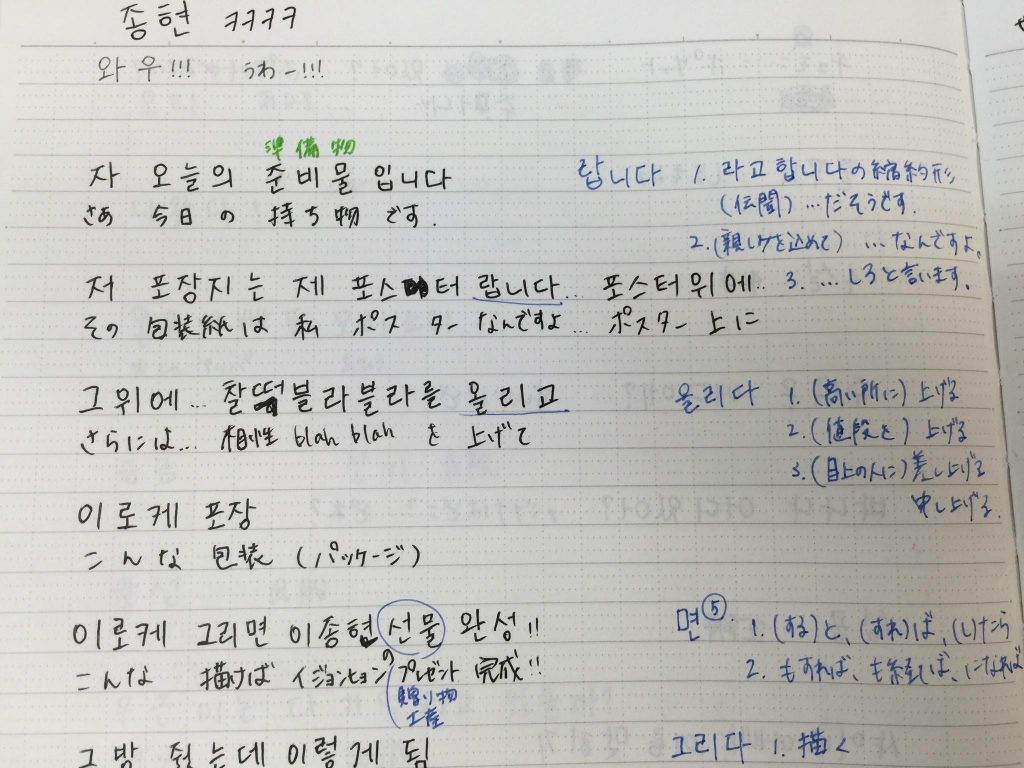 종현 ㅋㅋㅋㅋ
와우!!! うわー!!!
準備物
자 오늘의 준비물입니다
さあ 今日の 持ち物 です.
랍니다 1. 라고합니다の縮約形
(伝聞) …だそうです.
2.(親しみを込めて) …なんですよ.
3. …しろと言います.
저 포장지는 제 포스터 랍니다… 포스터위에…
その 包装紙は 私 ポスター なんですよ… ポスター 上に
그위에… 찰떡블라블라를 올리고
さらには… 相性 blah blah を 上げて
올리다 1. (高い所に) 上げる
2. (値段を) 上げる
3. (目上の人に) 差し上げる
申し上げる.
이로케 포장
こんな 包装 (パッケージ)
이로케 그리면 이종현 선물 완성!!
こんな 描けば イジョンヒョンの プレゼント 完成!!
贈り物
土産
면⑤ 1. (する)と、(すれ)ば、(し)たら
2. もすれば、も経てば、になれば
그방 줬는데 이렇게 됨
그리다 1. 描く